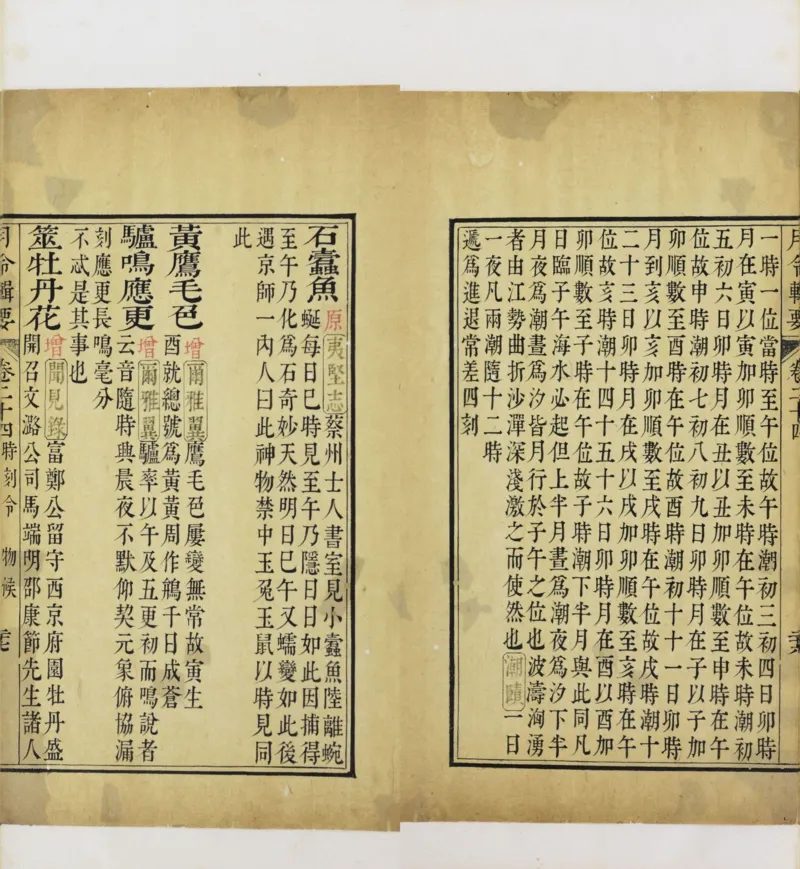 月令輯要
卷二十四
一時一位當時至午位故午時潮初三初四日卯時
月在寅以寅加卯順數至未時在午位故未時潮初
五初六日卯時月在丑以丑加卯順數至申時在午
位故申時潮初七初八初九日卯時月在子以子加
卯順數至酉時在午位故酉時潮初十十一日卯時
月到亥以亥加卯順數至戌時在午位故戌時潮十
二十三日卯時月在戌以戌加卯順數至亥時在午
位故亥時潮十四十五十六日卯時月在酉以酉加
卯順數至子時在午位故子時潮下半月與此同凡
日臨子午海水必起但上半月晝爲潮夜爲汐下半
月夜爲潮晝爲汐皆月行於子午之位也波濤洶湧
者由江勢曲折沙潬深淺激之而使然也潮賾一日
一夜凡兩潮隨十二時
遞爲進退常差四刻
石蠹魚
原夷堅志蔡州士人書室見小蠹魚陸離蜿
蜒每日巳時見至午乃隱日日如此因捕得
至午乃化爲石奇妙天然明日巳午又蠕變如此後
遇京師一內人曰此神物禁中玉兔玉鼠以時見同
此
黃鷹毛色
增爾雅翼鷹毛色屢變無常故寅生
酉就總號爲黃黃周作鴘千日成蒼
驢鳴應更
增爾雅翼驢率以午及五更初而鳴說者
云音隨時典晨夜不默仰契元象俯協漏
刻應更長鳴毫分
不忒是其事也
筮牡丹花
增聞見錄富鄭公留守西京府園牡丹盛
開召文潞公司馬端明邵康節先生諸人
月令輯要
卷二十四
時刻令
物候